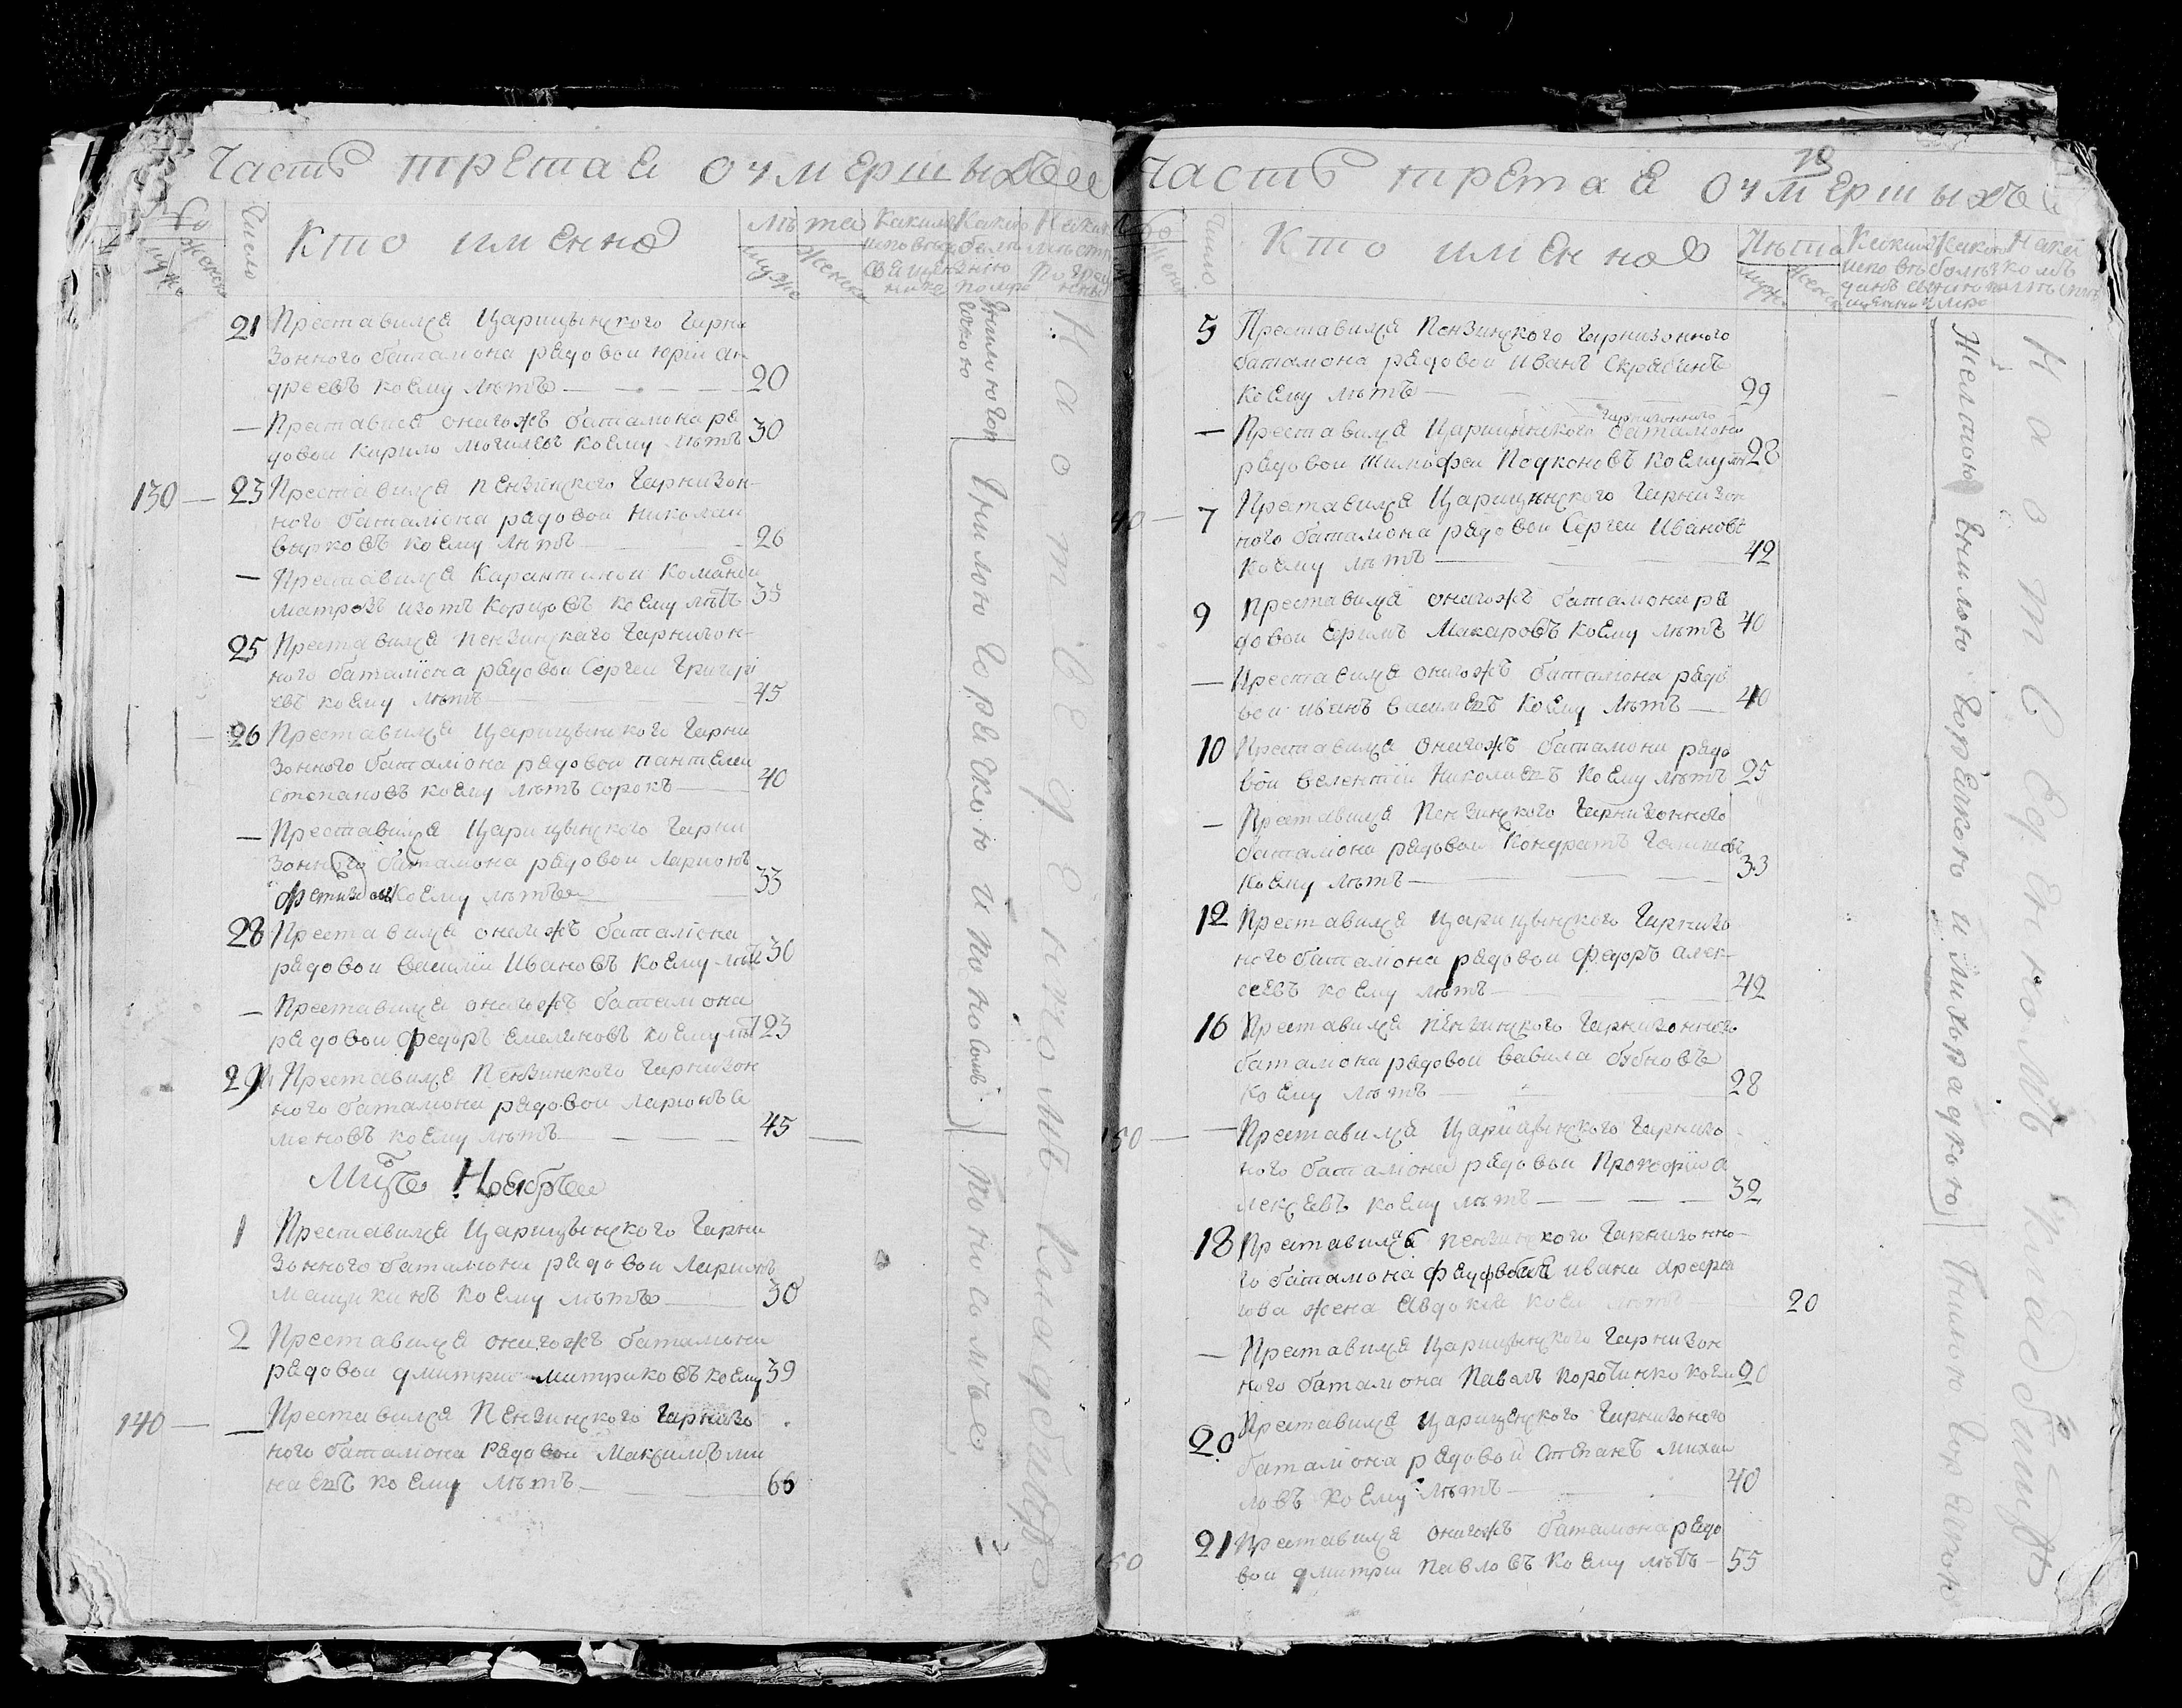 Часть третая о умершыхъ
№
мужа
женск
Число
Кто именно
Лѣта
мужс
женска
Какимъ исповѣд священника
Какою болезнию помре
На какомъ мѣсте погребены
21 Преставился Царицынского гарни
зонного баталиона рядовои юрїи ан
дреевъ коему лѣтъ — 20
— Преставися оногожъ баталиона ря
довои Кирило Могилевъ коему лѣтъ 30
130 — 23 Преставился пензинского гарнизон
ного баталїона рядовои Николаи
вырковъ коему лѣтъ — 26
— Преставился Карантинои команды
матрозъ изотъ Корцовъ коему лѣтъ 33
25 Преставился пензинскаго гарнизон
ного баталїона рядовои Сергеи Григорї
евъ коему лѣтъ — 45
— 26 Преставился Царицынского гарни
зонного баталїона рядовои пантелеи
степановъ коему лѣтъ сорокъ — 40
— Преставился Царицынского гарни
зонного баталиона рядовои Лариѡнъ
коему лѣтъ 33
28 Преставился оногожъ баталїона
рядовои василїи Ивановъ коему лѣтъ 30
— Преставился оногожъ баталиона
рядовои федоръ Емельяновъ коему лѣт 23
29 Преставился Пензинского гарнизон
ного баталиона рядовои Ларионъ се
меновъ коему лѣтъ — 45
Мцъ Ноября
1 Преставился Царицынского гарни
зонного баталиона рядовои Ларионъ
мащикинъ коему лѣтъ — 30
2 Преставился оногожъ баталиона
рядовои дмитрии митриковъ коему 39
140 — — Преставился Пензинского гарнизо
ного баталиона рядовои Максимъ ми
наевъ коему лѣтъ — 66
Гнилою горячкою
Гнилою горячкою и поносомъ
Поносомъ
На отведенномъ кладбище
Часть третая о умершыхъ
78
Число
Кто именно
Лѣта
мужс
женск
5 Преставился Пензинского гарнизонного
баталиона рядовои Иванъ Скрябинъ
коему лѣтъ — 29
— Преставился Царицынского гарнизонного баталиона
рядовои тимофеи Подконовъ коему лѣ 28
40 — 7 Преставился Царицынского гарнизон
ного баталиона рядовои Сергеи Ивановъ
коему лѣтъ — 42
9 Преставился оногожъ баталиона ря
довои Ефимъ Макаровъ коему лѣтъ 40
— Преставился оногожъ баталїона рядо
вои иванъ васильевъ коему лѣтъ — 40
10 Преставился оногожъ баталиона рядо
вои велентїи Николаевъ коему лѣтъ 25
— Преставился Пензинского гарнизонного
баталїона рядовои Кондратъ
коему лѣтъ — 33
12 Преставился Царицынского гарнизо
ного баталїона рядовои федоръ алек
сеевъ коему лѣтъ — 42
16 Преставился пензинского гарнизонного
баталиона рядовои вавила бубновъ
коему лѣтъ — 28
150 — — Преставился Царицынского гарнизо
ного баталїона рядовои Прокофїи а
лексѣевъ коему лѣтъ — 32
18 Преставилась пензинского гарнизонно
го баталиона ивана
жена Авдокея коеи лѣтъ 20
— Преставился Царицынского гарнизон
ного баталиона Павелъ коротинко коему 20
20 Преставился царицынского гарнизоного
баталїона рядовои Степанъ михаи
ловъ коему лѣтъ — 40
50 21 Преставился оногожъ баталиона рядо
вои дмитрии Павловъ коему лѣтъ — 55
Желтою гнилою горячкою и лихорадкою
Гнилою горячкою
На отведенномъ кладбище